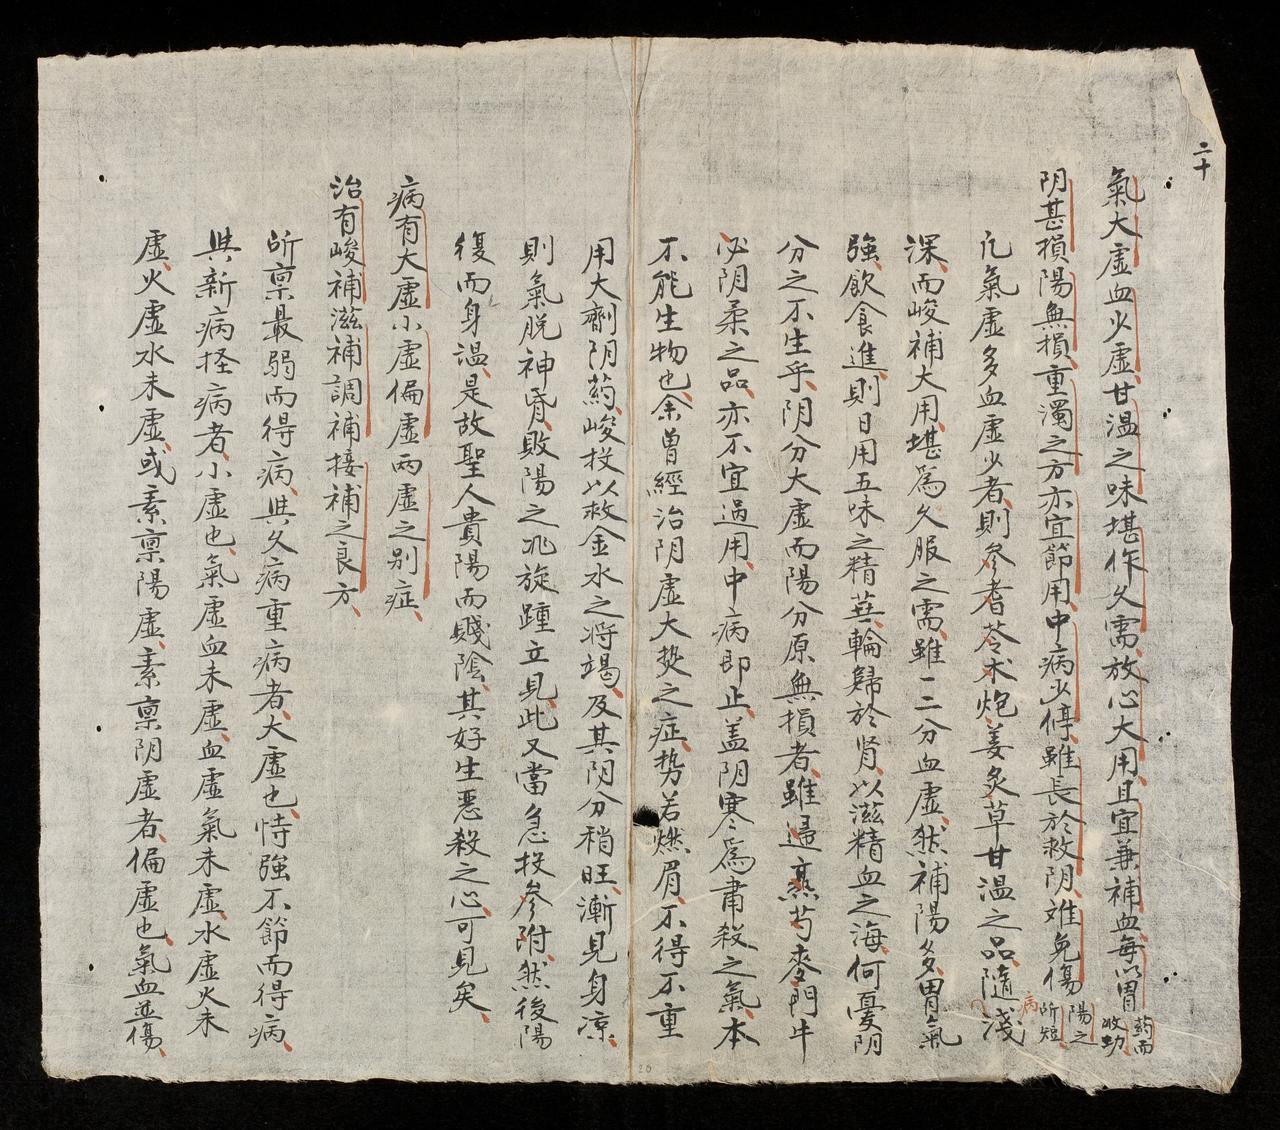 二十
氣大虛血少虛甘温之味堪作久需放心大用且宜兼補血每以胃药而收功
阴甚損陽無損重濁之方亦宜節用中病少停雖長於救阴难免傷陽之所短
病
凡氣虛多血虛少者則參耆苓术炮姜炙草甘温之品隨淺
深而峻補大用堪爲久服之需雖一二分血虛然補陽多胃氣
強飲食進則日用五味之精華輸歸於肾以滋精血之海何憂阴
分之不生乎阴分大虛而陽分原無損者雖歸熟芍麥門牛
必阴柔之品亦不宜過用中病即止盖阴寒爲肅殺之氣本
不能生物也余曾經治阴虛大热之症势若燃眉不得不重
用大劑阴药峻投以救金水之将竭及其阴分稍旺漸見身凉
則氣脱神昏敗陽之兆旋踵立見此又當急投參附然後陽
復而身温是故聖人貴陽而賤陰其好生惡殺之心可見矣
病有大虛小虛偏虛两虛之别症
治有峻補滋補調補接補之良方
所禀最弱而得病與久病重病者大虛也恃強不節而得病
與新病怪病者小虛也氣虛血未虛血虛氣未虛水虛火未
虛火虛水未虛或素禀陽虛素禀阴虛者偏虛也氣血並傷
20